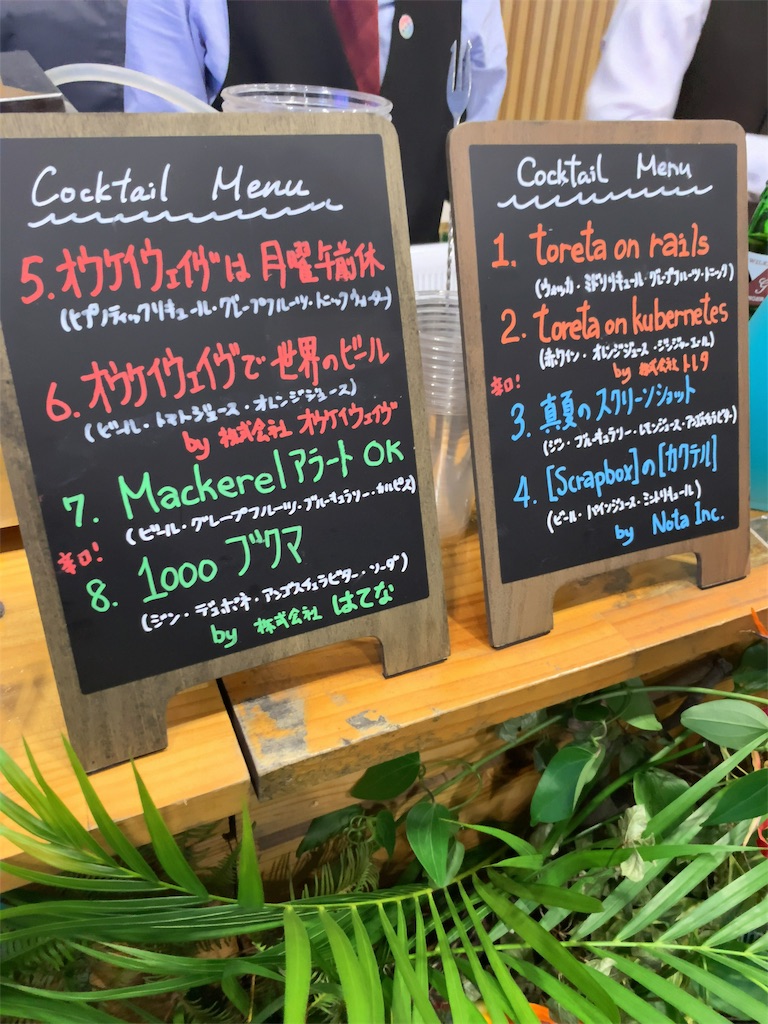 Cocktail Menu
5. オウケイウェイヴは 月曜午前休
(ヒプノティックリキュール・グレープフルーツ・トニックウォーター)
6. オウケイウェイヴで 世界のビール
(ビール・トマトジュース・オレンジジュース)
by 株式会社 オウケイウェイヴ
7. Mackerelアラート OK
(ビール・グレープフルーツ・ブルーキュラソー・カルピス)
辛口!
8. 1000 ブクマ
(ジン・デュボネ・アンゴスチュラビター・ソーダ)
by 株式会社 はてな
Cocktail Menu
1. toreta on rails
(ウォッカ・ミドリリキュール・グレープフルーツ・トニック)
2. toreta on kubernetes
(赤ワイン・オレンジジュース・ジンジャーエール)
by 株式会社 トレタ
辛口!
3. 真夏のスクリーンショット
(ジン・ブルーキュラソー・レモンジュース・アンゴスチュラビター)
4. [Scrapbox]の[カクテル]
(ビール・パインジュース・ミントリキュール)
by Nota Inc.